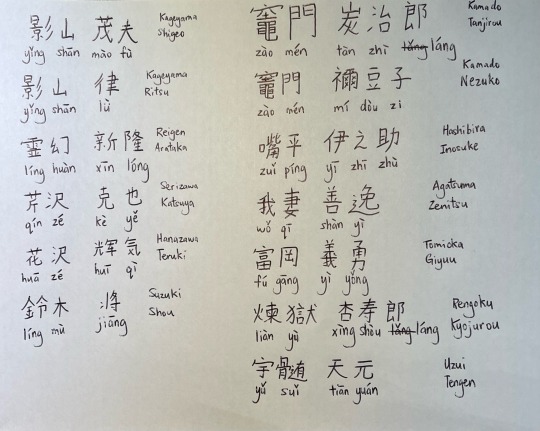 影山 茂夫 Kageyama Shigeo
yǐng shān mào fū
影山 律 Kageyama Ritsu
yǐng shān lǜ
霊幻 新隆 Reigen Arataka
líng huàn xīn lóng
芹沢 克也 Serizawa Katsuya
qín zé kè yě
花沢 輝気 Hanazawa Teruki
huā zé huī qì
鈴木 将 Suzuki Shou
líng mù jiāng
竈門 炭治郎 Kamado Tanjirou
zào mén tàn zhì láng
竈門 禰豆子 Kamado Nezuko
zào mén mí dòu zi
嘴平 伊之助 Hashibira Inosuke
zuǐ píng yī zhī zhù
我妻 善逸 Agatsuma Zenitsu
wǒ qī shàn yì
富岡 義勇 Tomioka Giyuu
fù gāng yì yǒng
煉獄 杏寿郎 Rengoku Kyojurou
liàn yù xìng shòu láng
宇髄 天元 Uzui Tengen
yǔ suǐ tiān yuán